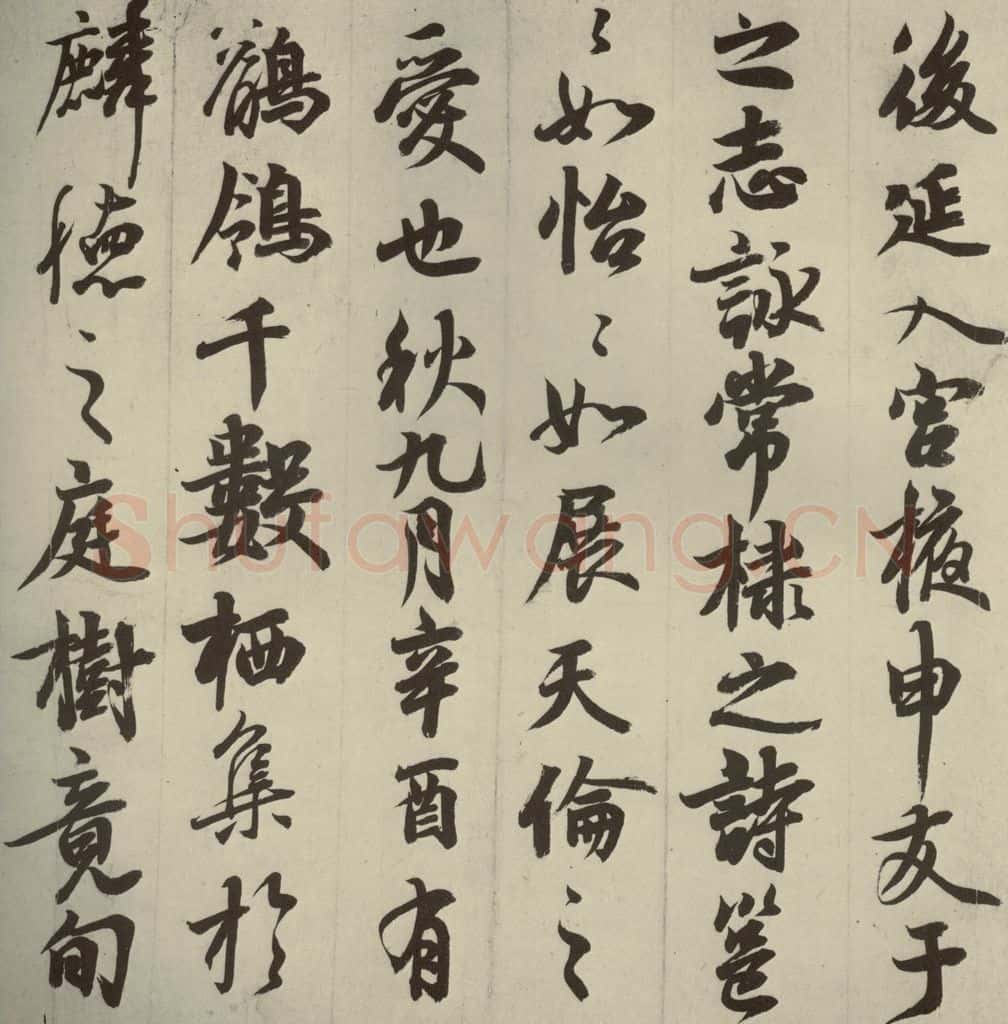 後延入宮掖申友于
之志詠常棣之詩邕
〻如怡〻如展天倫之
愛也秋九月辛酉有
鶺鴒千數栖集於
麟德之庭樹竟旬
Shufawang.CN